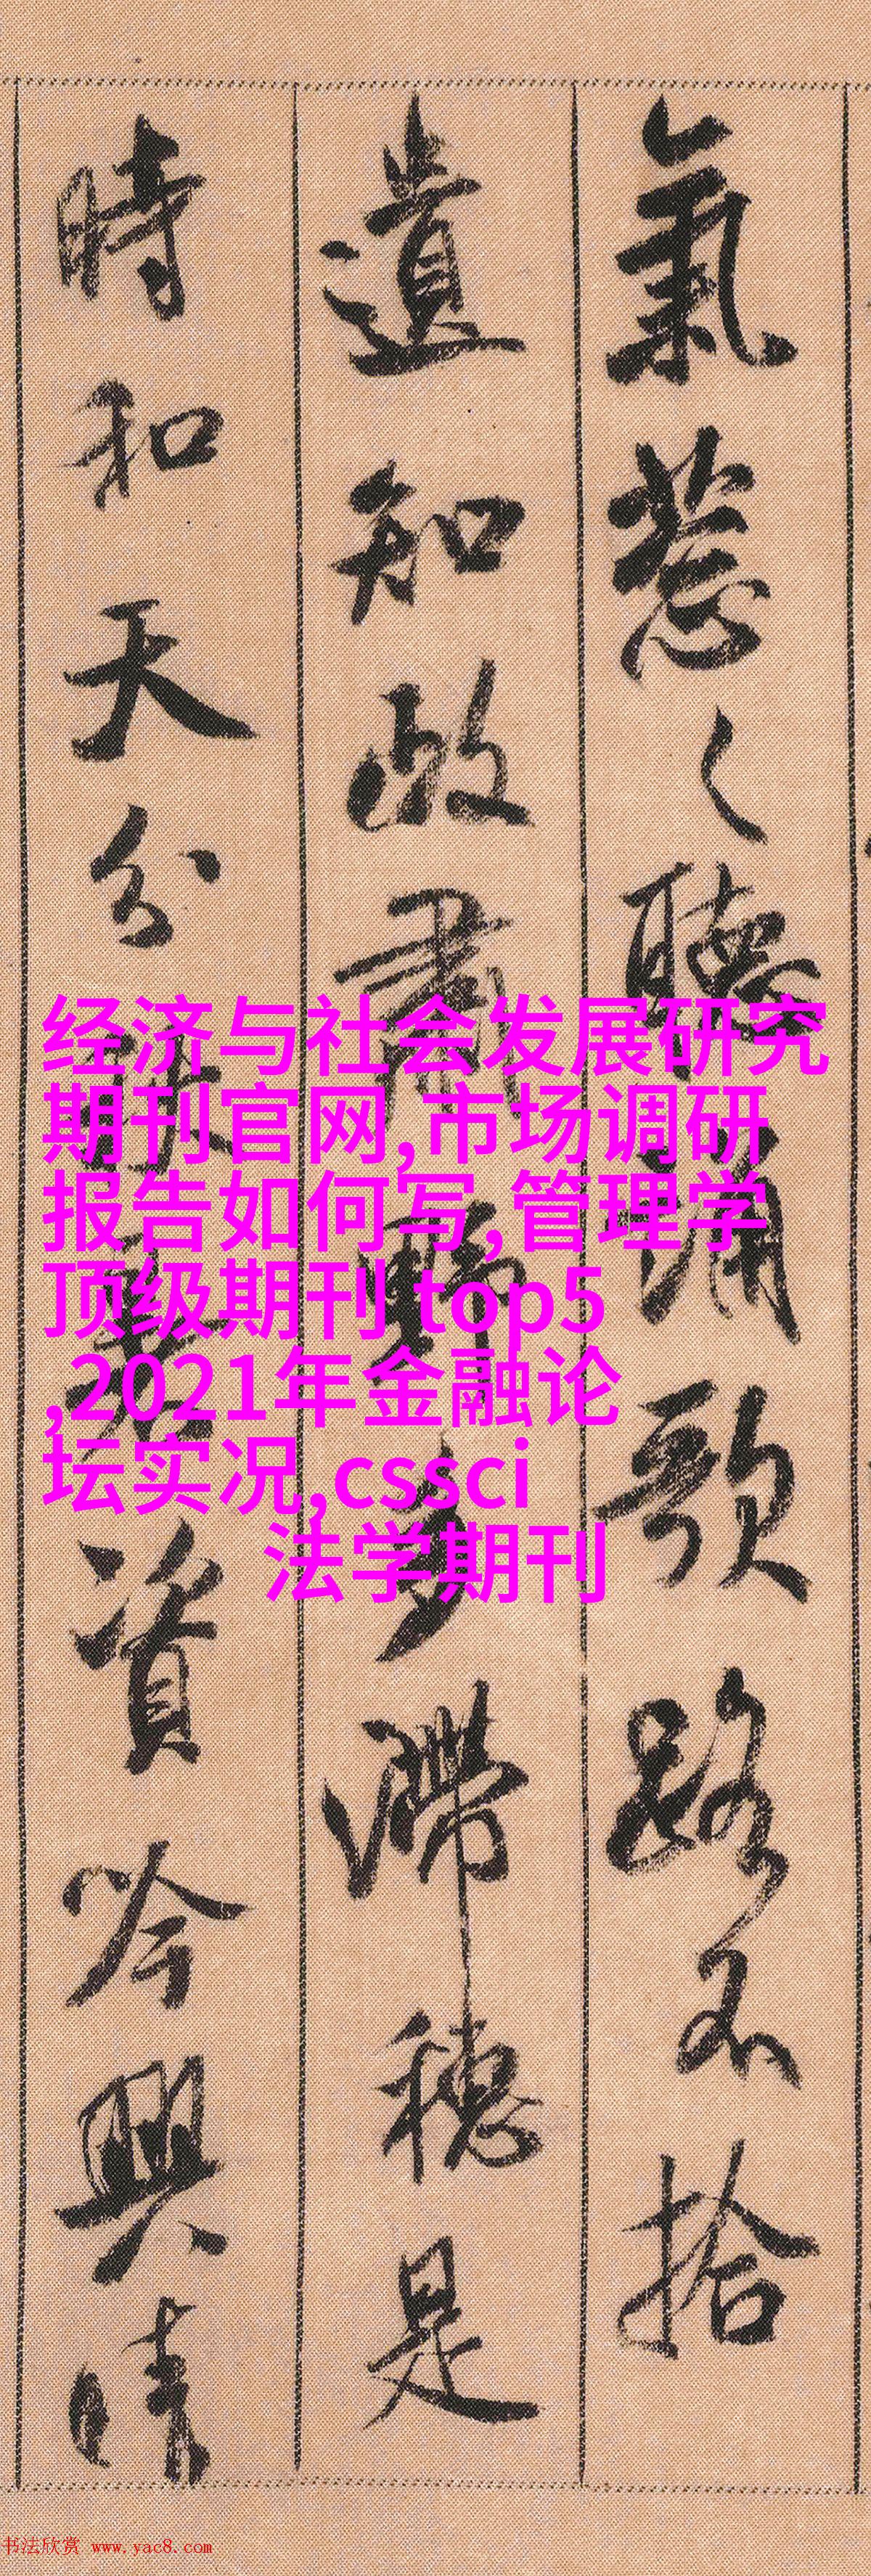 氣葱々聽誦歌路不拾
遺知政肅野多滯穗是
時和天分秋暑資吟興晴
经济与社会发展研究
期刊官网,市场调研
报告如何写,管理学
顶级期刊 top5
,2021年金融论
坛实况,cssci
法学期刊
书法欣赏 www.yac8.com